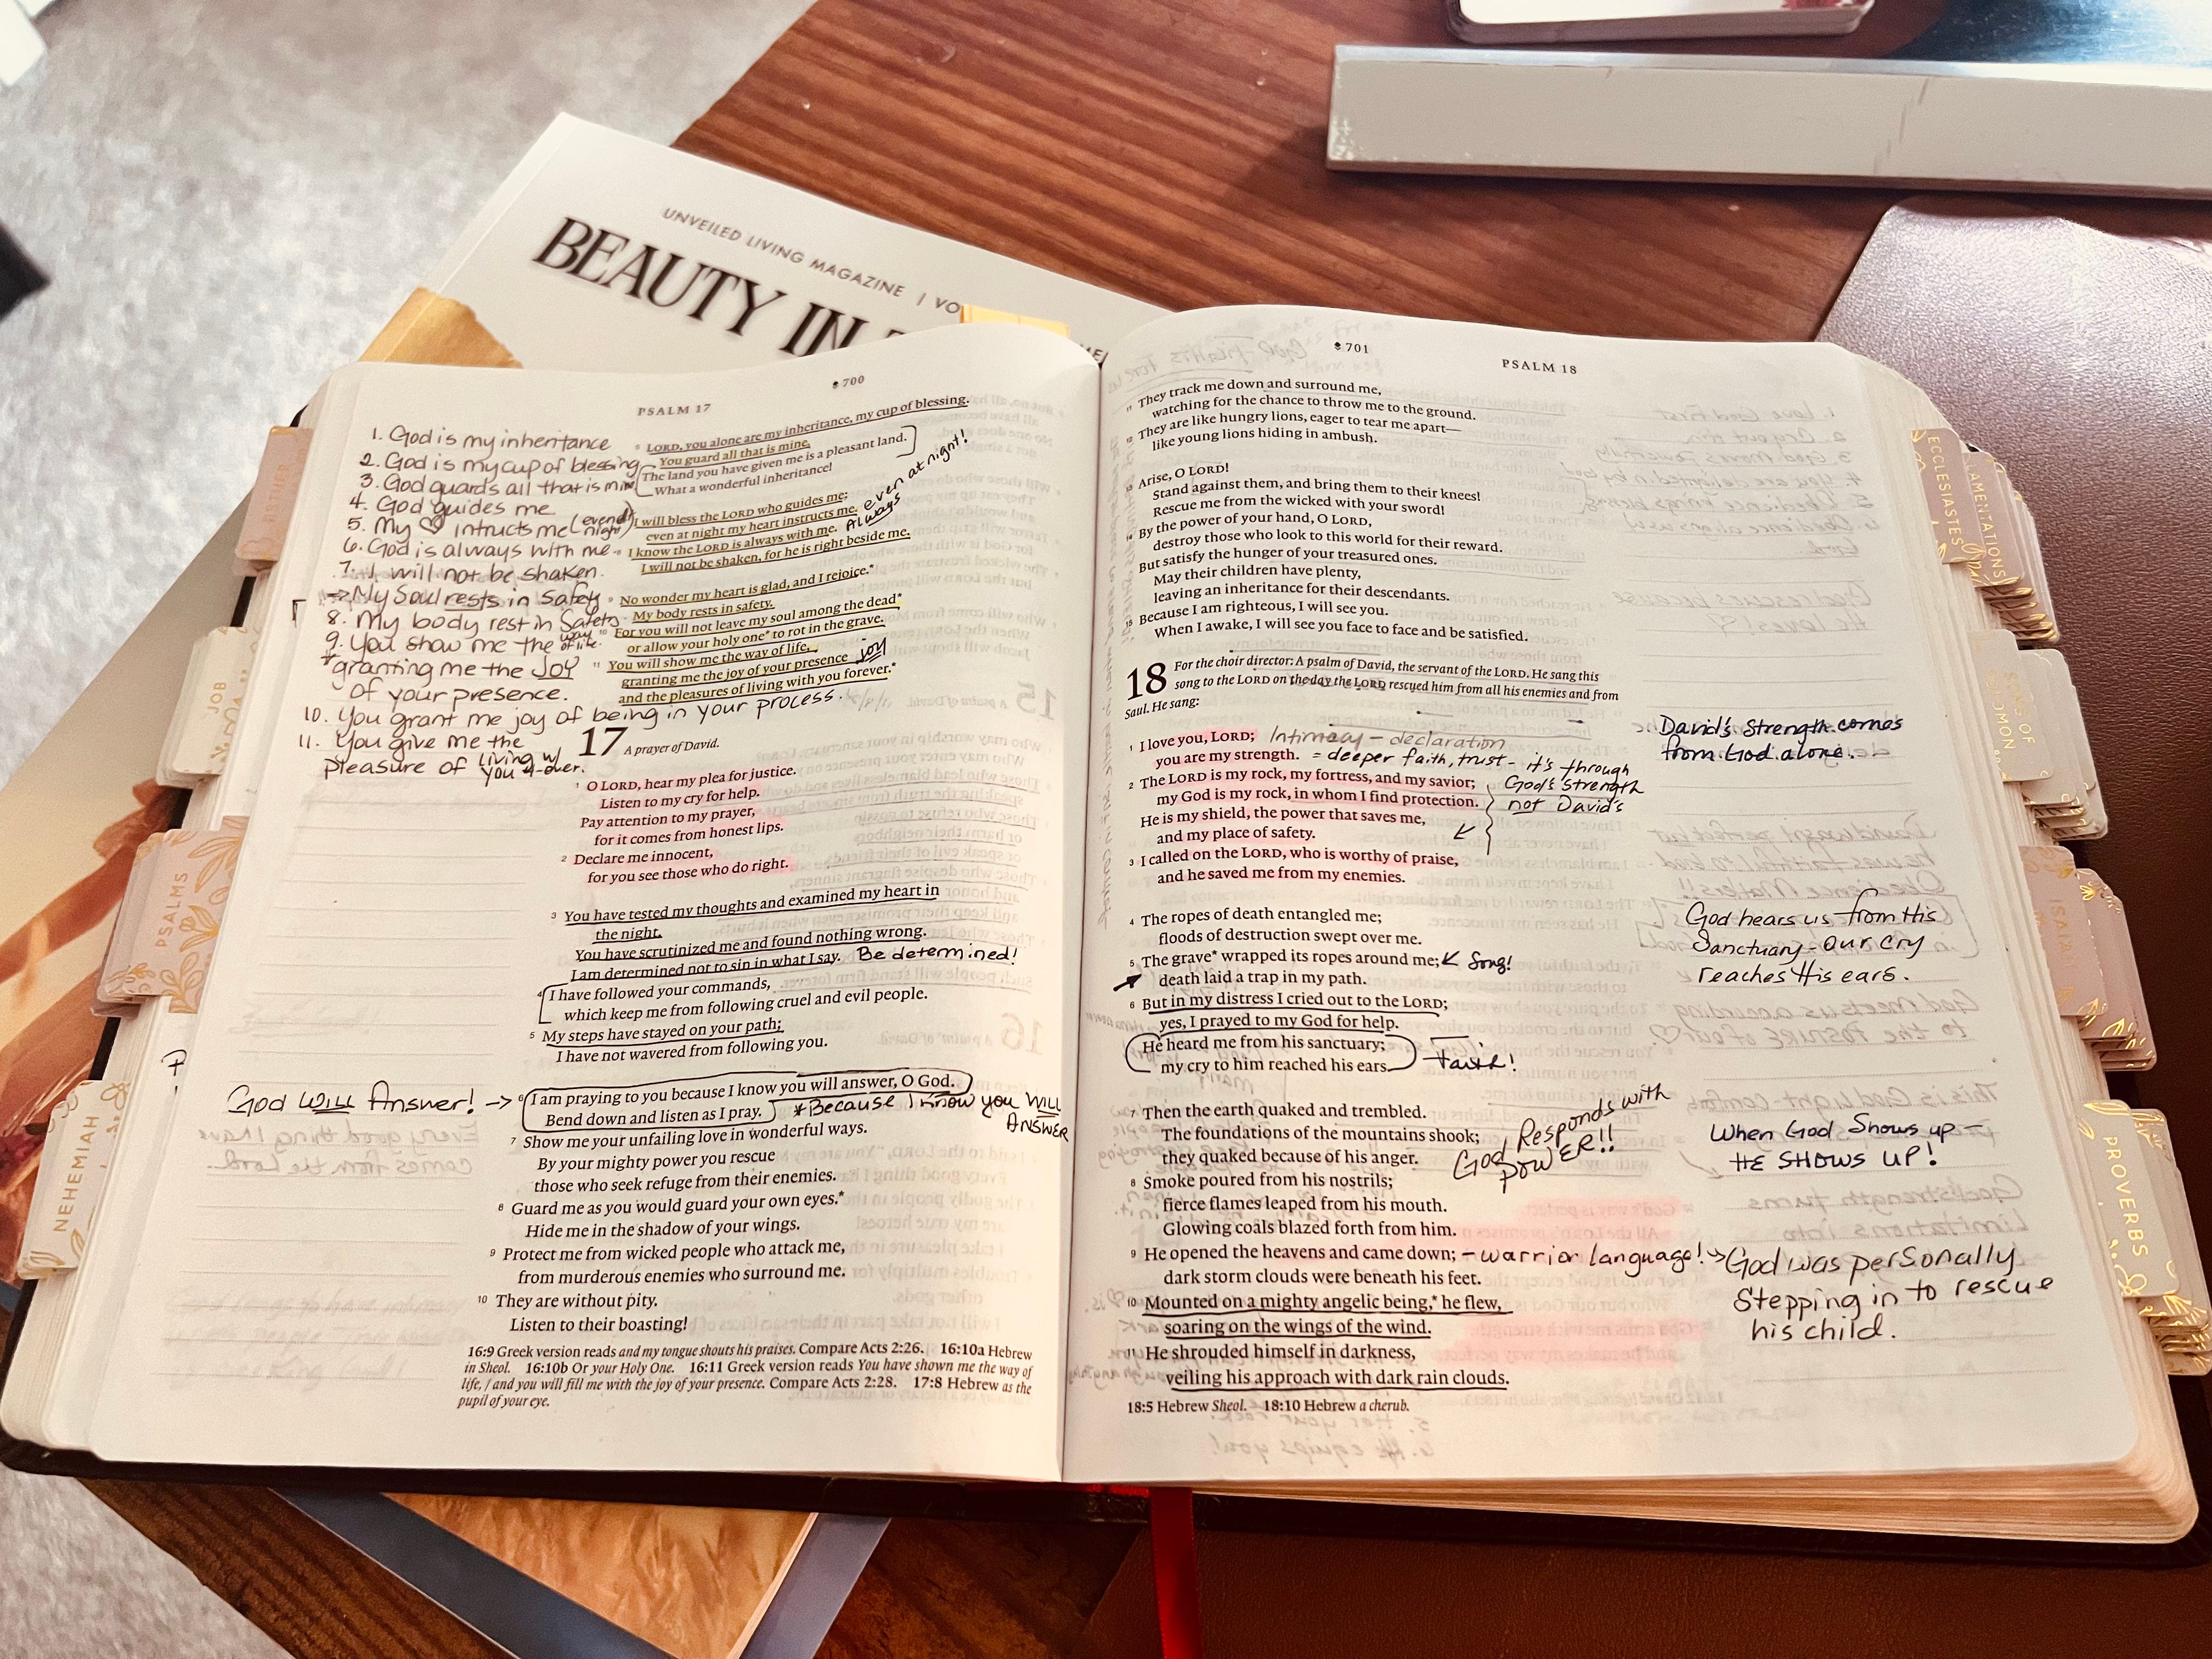 UNVEILED LIVING MAGAZINE | VO
BEAUTY IN
700
PSALM 17
1. God is my inheritance
2. God is my cup of blessing
3. God guards all that is mine
4. God guides me
5. My ♡ intructs me (even @ night)
6. God is always with me
7. I will not be shaken.
→ My Soul rests in Safety
8. My body rest in Safety
9. You show me the way of life.
granting me the JOY
of your presence.
10. You grant me joy of being in your process.
11. You give me the
pleasure of living w/ you 4-ever.
5 LORD, you alone are my inheritance, my cup of blessing.
You guard all that is mine.
6 The land you have given me is a pleasant land.
What a wonderful inheritance!
7 I will bless the LORD who guides me;
even at night my heart instructs me. even at night!
8 I know the LORD is always with me. Always
I will not be shaken, for he is right beside me.
9 No wonder my heart is glad, and I rejoice.*
My body rests in safety.
10 For you will not leave my soul among the dead*
or allow your holy one* to rot in the grave.
11 You will show me the way of life,
granting me the joy of your presence joy
and the pleasures of living with you forever.*
17 A prayer of David.
1 O LORD, hear my plea for justice.
Listen to my cry for help.
Pay attention to my prayer,
for it comes from honest lips.
2 Declare me innocent,
for you see those who do right.
3 You have tested my thoughts and examined my heart in
the night.
You have scrutinized me and found nothing wrong.
I am determined not to sin in what I say. Be determined!
4 I have followed your commands,
which keep me from following cruel and evil people.
5 My steps have stayed on your path;
I have not wavered from following you.
God WILL Answer! →
6 I am praying to you because I know you will answer, O God.
Bend down and listen as I pray. *Because I know you WILL
ANSWER
7 Show me your unfailing love in wonderful ways.
By your mighty power you rescue
those who seek refuge from their enemies.
8 Guard me as you would guard your own eyes.*
Hide me in the shadow of your wings.
9 Protect me from wicked people who attack me,
from murderous enemies who surround me.
10 They are without pity.
Listen to their boasting!
16:9 Greek version reads and my tongue shouts his praises. Compare Acts 2:26. 16:10a Hebrew
in Sheol. 16:10b Or your Holy One. 16:11 Greek version reads You have shown me the way of
life, / and you will fill me with the joy of your presence. Compare Acts 2:28. 17:8 Hebrew as the
pupil of your eye.
701
PSALM 18
11 They track me down and surround me,
watching for the chance to throw me to the ground.
12 They are like hungry lions, eager to tear me apart—
like young lions hiding in ambush.
13 Arise, O LORD!
Stand against them, and bring them to their knees!
Rescue me from the wicked with your sword!
14 By the power of your hand, O LORD,
destroy those who look to this world for their reward.
But satisfy the hunger of your treasured ones.
May their children have plenty,
leaving an inheritance for their descendants.
15 Because I am righteous, I will see you.
When I awake, I will see you face to face and be satisfied.
18 For the choir director: A psalm of David, the servant of the LORD. He sang this
song to the LORD on the day the LORD rescued him from all his enemies and from
Saul. He sang:
1 I love you, LORD; Intimacy - declaration
you are my strength. = deeper faith, trust - it's through
God's Strength
not David's
2 The LORD is my rock, my fortress, and my savior;
my God is my rock, in whom I find protection.
He is my shield, the power that saves me,
and my place of safety.
3 I called on the LORD, who is worthy of praise,
and he saved me from my enemies.
David's Strength comes
from God alone.
4 The ropes of death entangled me;
floods of destruction swept over me.
5 The grave* wrapped its ropes around me; Song!
death laid a trap in my path.
6 But in my distress I cried out to the LORD;
yes, I prayed to my God for help.
He heard me from his sanctuary;
my cry to him reached his ears. Faith!
God hears us from His
Sanctuary - our cry
reaches His ears.
7 Then the earth quaked and trembled.
The foundations of the mountains shook;
they quaked because of his anger.
God Responds with
POWER!!
When God Shows up -
HE SHOWS UP!
8 Smoke poured from his nostrils;
fierce flames leaped from his mouth.
Glowing coals blazed forth from him.
9 He opened the heavens and came down; - warrior language! →
dark storm clouds were beneath his feet.
God was personally
Stepping in to rescue
his child.
10 Mounted on a mighty angelic being,* he flew,
soaring on the wings of the wind.
11 He shrouded himself in darkness,
veiling his approach with dark rain clouds.
18:5 Hebrew Sheol. 18:10 Hebrew a cherub.
ESTHER
JOB
PSALMS
NEHEMIAH
ECCLESIASTES
LAMENTATIONS
SONG OF
SOLOMON
ISAIA
PROVERBS